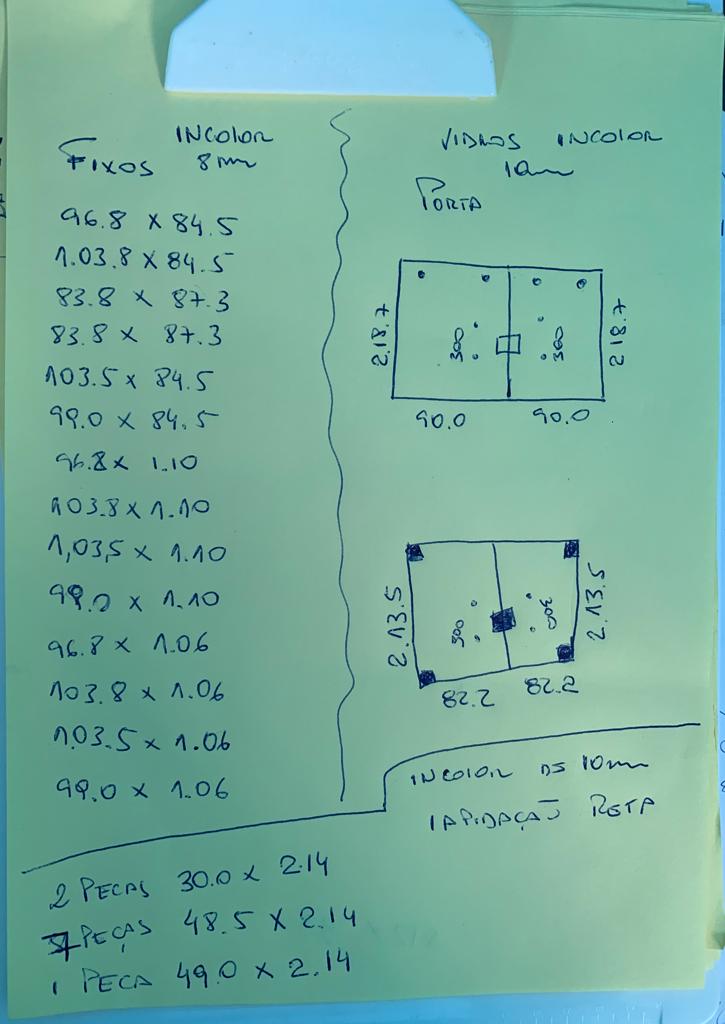 FIXOS INCOLOR
8mm
96.8 x 84.5
1.03.8 x 84.5
83.8 x 87.3
83.8 x 87.3
103.5 x 84.5
99.0 x 84.5
96.8 x 1.10
103.8 x 1.10
1,03,5 x 1.10
99.0 x 1.10
96.8 x 1.06
103.8 x 1.06
1.03.5 x 1.06
99.0 x 1.06
VIDROS INCOLOR
10mm
PORTA
2.18.7
300
300
2.18.7
90.0 90.0
2.13.5
300
300
2.13.5
82.2 82.2
INCOLOR DE 10mm
LAPIDAÇÃO RETA
2 PECAS 30.0 x 2.14
PEÇAS 48.5 x 2.14
1 PECA 49.0 x 2.14